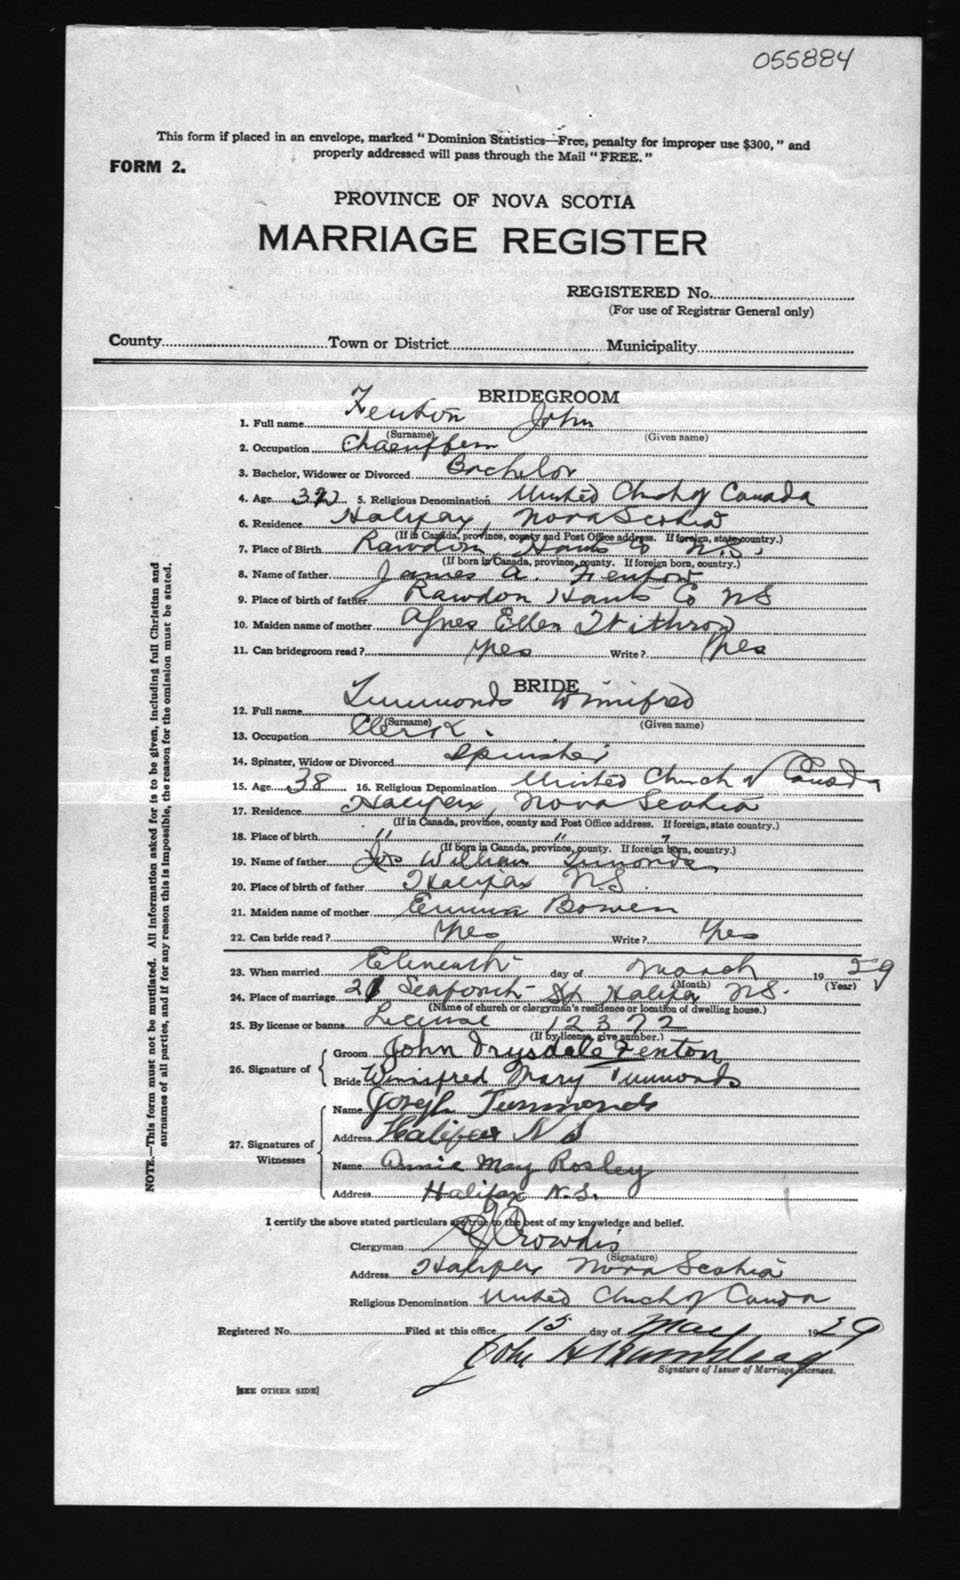 055884
This form if placed in an envelope, marked "Dominion Statistics—Free, penalty for improper use $300," and
properly addressed will pass through the Mail "FREE."
FORM 2.
PROVINCE OF NOVA SCOTIA
MARRIAGE REGISTER
REGISTERED No.
(For use of Registrar General only)
County Town or District Municipality
BRIDEGROOM
1. Full name Fenton John
(Surname) (Given name)
2. Occupation
3. Bachelor, Widower or Divorced Bachelor
4. Age 5. Religious Denomination United Church of Canada
6. Residence Halifax, Nova Scotia
(If in Canada, province, county and Post Office address. If foreign, state country.)
7. Place of Birth Rawdon, Hants Co N.S.
(If born in Canada, province, county. If foreign born, country.)
8. Name of father James A. Fenton
9. Place of birth of father Rawdon Hants Co NS
10. Maiden name of mother Agnes Ellen Withrow
11. Can bridegroom read? Yes Write? Yes
BRIDE
12. Full name Tummonds Winnifred
(Surname) (Given name)
13. Occupation Clerk.
14. Spinster, Widow or Divorced Spinster
15. Age 38 16. Religious Depomination United Church of Canada
17. Residence Halifax, Nova Scotia
(If in Canada, province, county and Post Office address. If foreign, state country.)
18. Place of birth " " "
(If born in Canada, province, county. If foreign born, country.)
19. Name of father Jos William
20. Place of birth of father Halifax N.S.
21. Maiden name of mother Emma Bowen
22. Can bride read? Yes Write? Yes
23. When married day of March 1929
(Month) (Year)
24. Place of marriage 21 Seaforth St Halifax N.S.
(Name of church or clergyman's residence or location of dwelling house.)
25. By license or banns License 12372
(If by license, give number.)
26. Signature of Groom John Drysdale Fenton
Bride Winifred Mary Tummonds
27. Signatures of Witnesses Name Joseph Tummonds
Address Halifax N S
Name Annie May Rosley
Address Halifax N.S.
I certify the above stated particulars are true to the best of my knowledge and belief.
Clergyman Crowdis
(Signature)
Address Halifax Nova Scotia
Religious Denomination United Church of Canada
Registered No. Filed at this office 15 day of May 1929
John H
Signature of Issuer of Marriage Licenses.
[SEE OTHER SIDE]
NOTE.—This form must not be mutilated. All information asked for is to be given, including full Christian and
surnames of all parties, and if for any reason this is impossible, the reason for the omission must be stated.